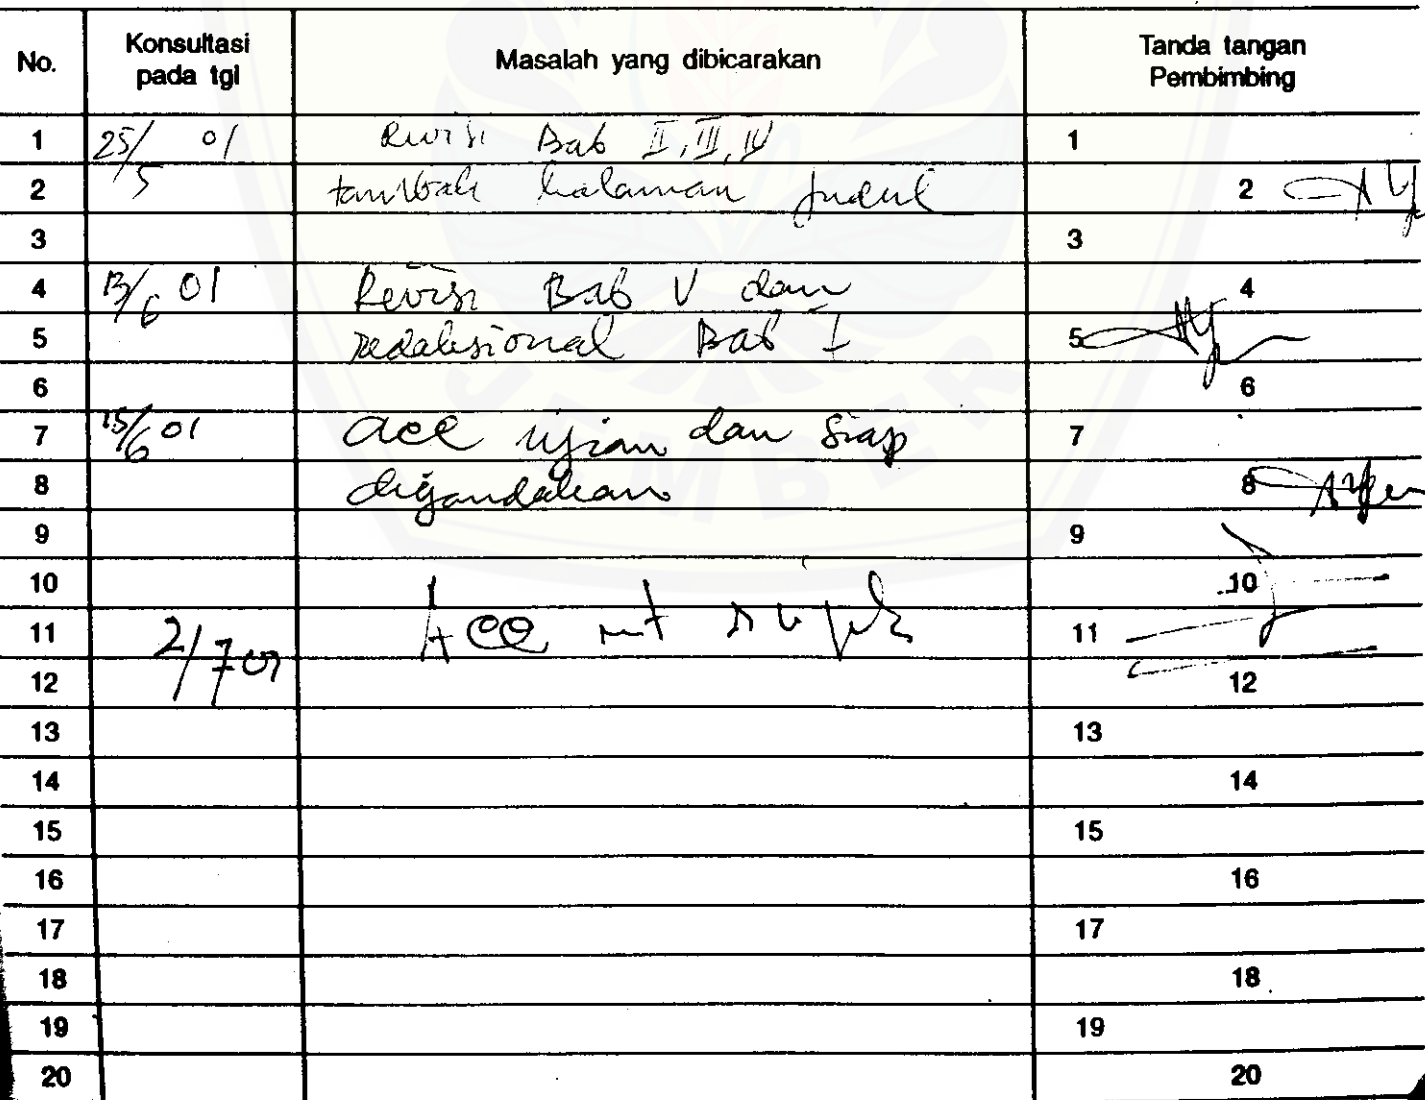 No. Konsultasi pada tgl Masalah yang dibicarakan Tanda tangan Pembimbing
1 25/5 01 Revisi Bab II, III, IV 1
2 tambah halaman judul 2
3 3
4 13/6 01 Revisi Bab V dan 4
5 redaksional Bab I 5
6 6
7 15/6 01 acc ujian dan siap 7
8 digandakan 8
9 9
10 10
11 2/7 01 Acc 11
12 12
13 13
14 14
15 15
16 16
17 17
18 18
19 19
20 20
JEMBER